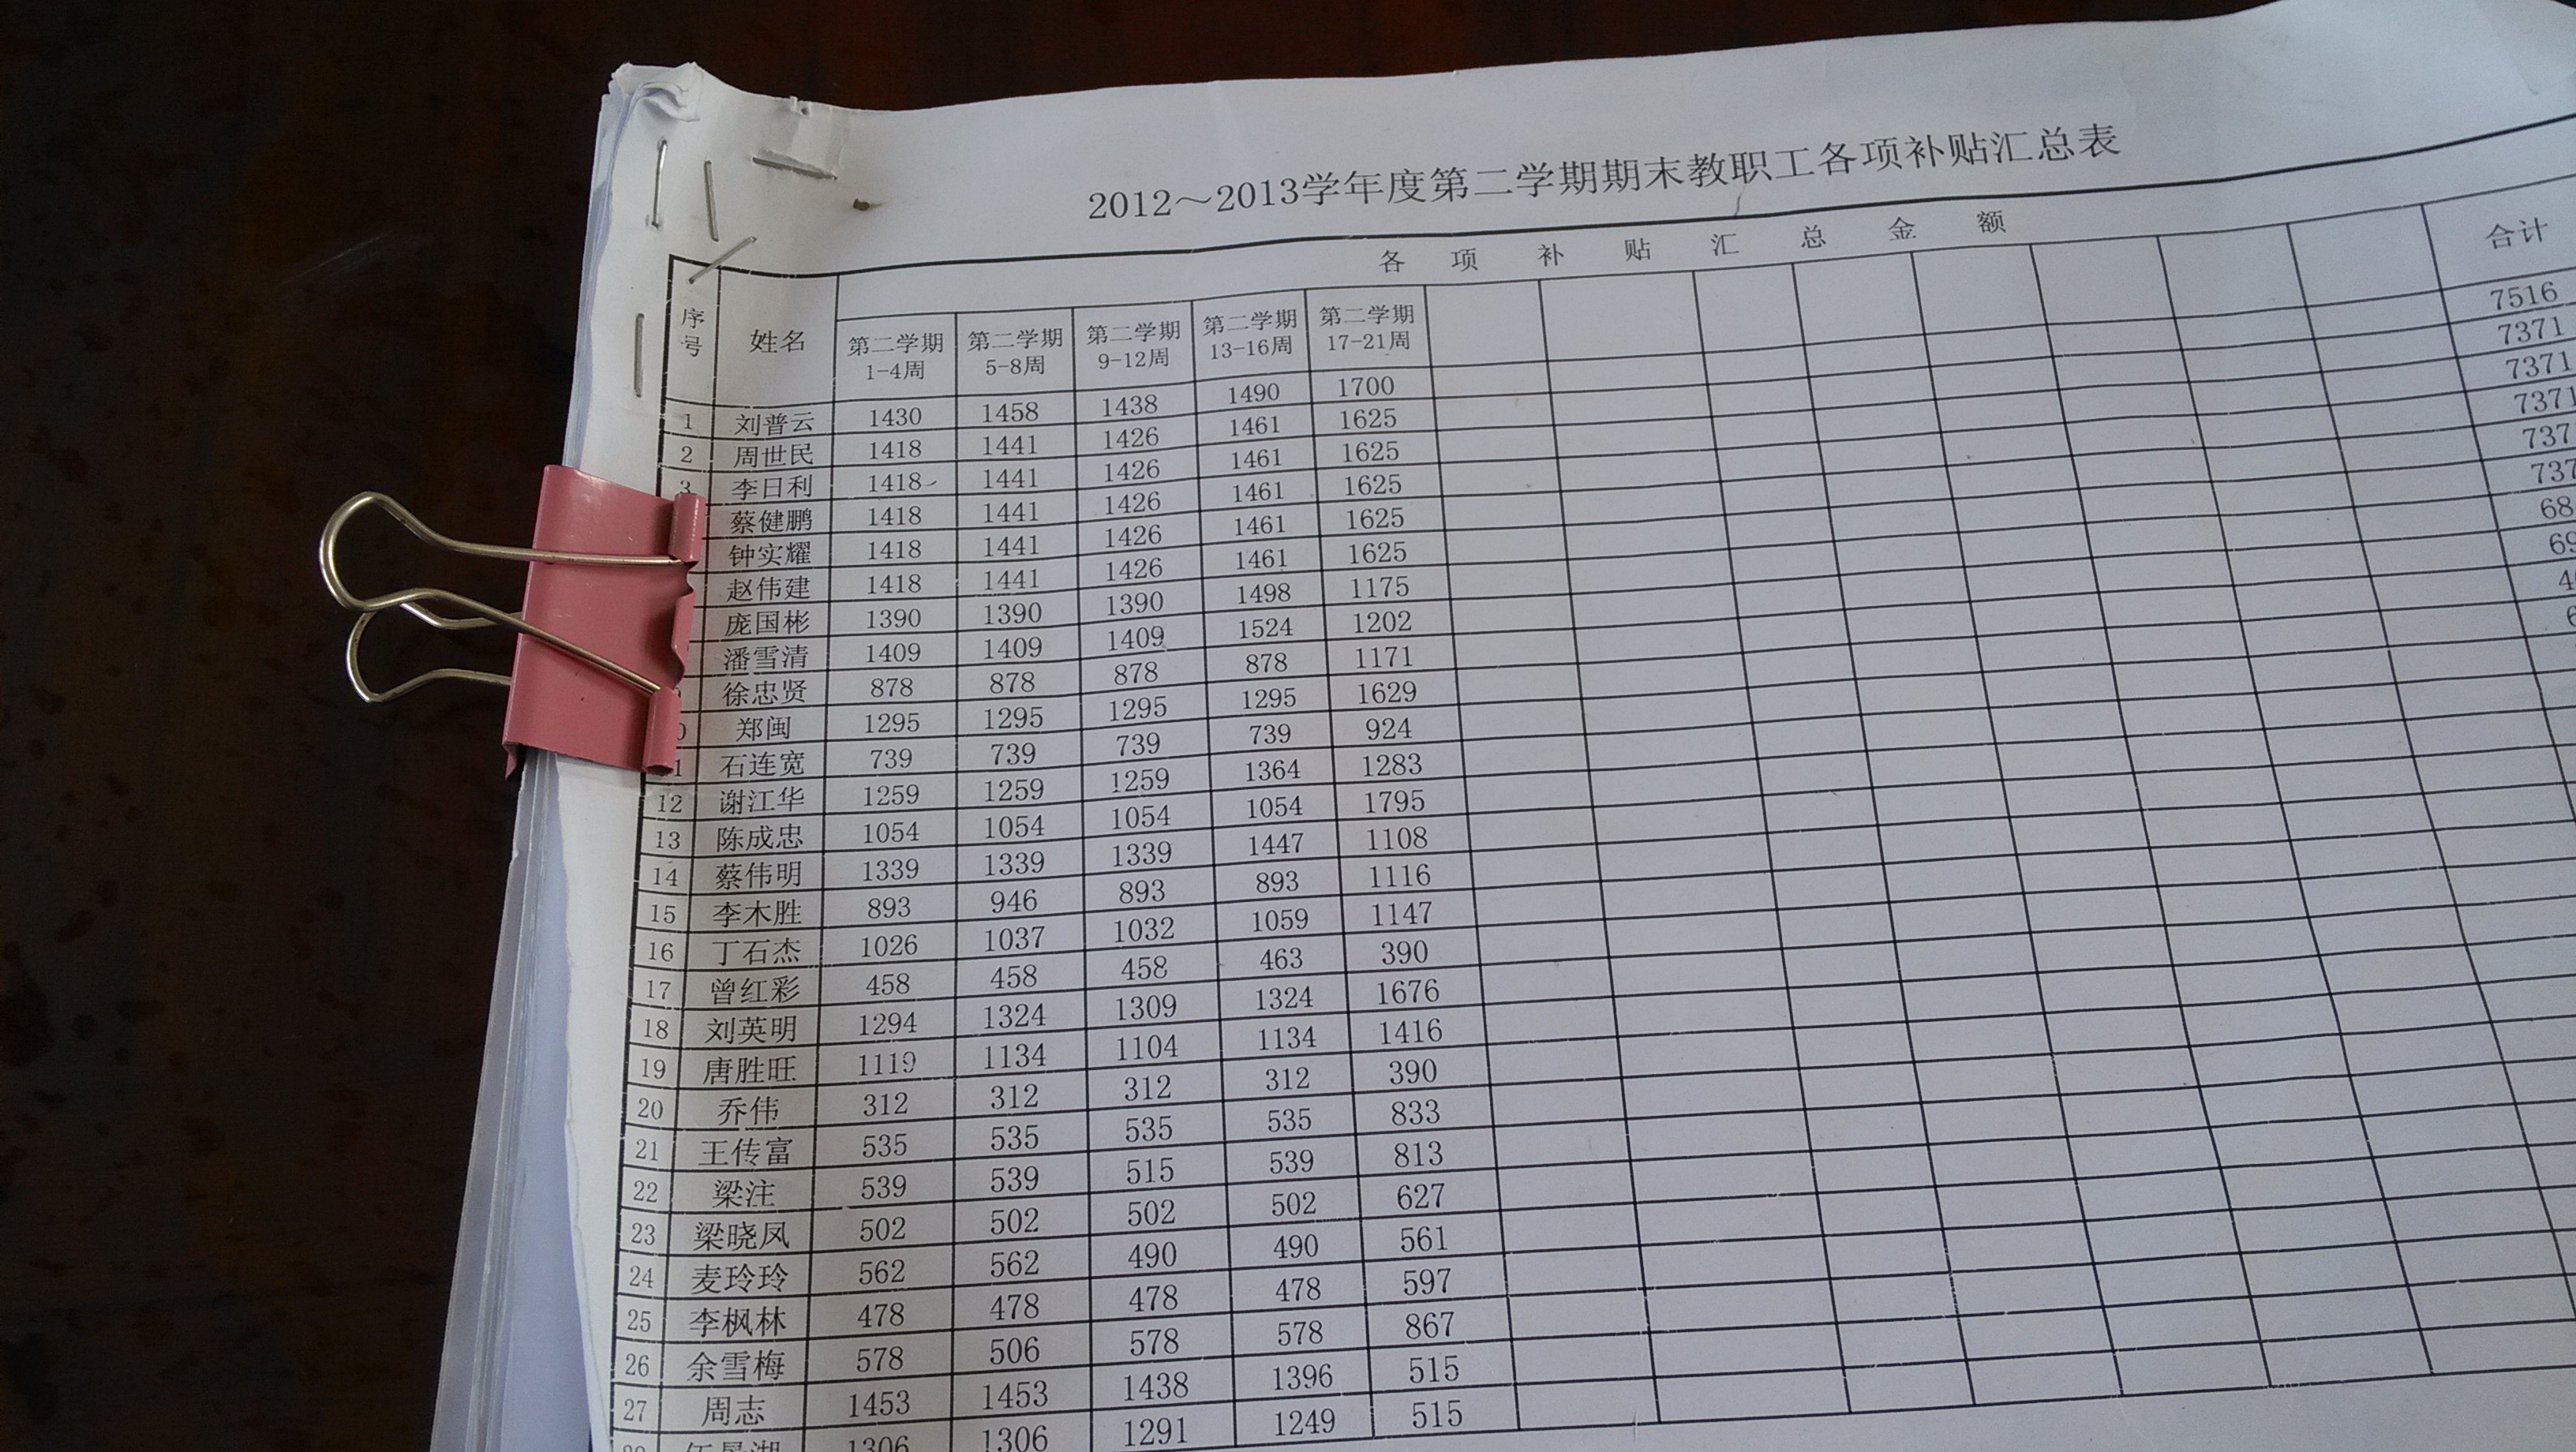 2012～2013学年度第二学期期末教职工各项补贴汇总表
序号 姓名 各项补贴汇总金额 合计
第二学期1-4周 第二学期5-8周 第二学期9-12周 第二学期13-16周 第二学期17-21周
1 刘普云 1430 1458 1438 1490 1700 7516
2 周世民 1418 1441 1426 1461 1625 7371
3 李日利 1418 1441 1426 1461 1625 7371
蔡健鹏 1418 1441 1426 1461 1625 7371
钟实耀 1418 1441 1426 1461 1625 737
赵伟建 1418 1441 1426 1461 1625 737
庞国彬 1390 1390 1390 1498 1175 68
潘雪清 1409 1409 1409 1524 1202 69
徐忠贤 878 878 878 878 1171
郑闽 1295 1295 1295 1295 1629
石连宽 739 739 739 739 924
12 谢江华 1259 1259 1259 1364 1283
13 陈成忠 1054 1054 1054 1054 1795
14 蔡伟明 1339 1339 1339 1447 1108
15 李木胜 893 946 893 893 1116
16 丁石杰 1026 1037 1032 1059 1147
17 曾红彩 458 458 458 463 390
18 刘英明 1294 1324 1309 1324 1676
19 唐胜旺 1119 1134 1104 1134 1416
20 乔伟 312 312 312 312 390
21 王传富 535 535 535 535 833
22 梁注 539 539 515 539 813
23 梁晓凤 502 502 502 502 627
24 麦玲玲 562 562 490 490 561
25 李枫林 478 478 478 478 597
26 余雪梅 578 506 578 578 867
27 周志 1453 1453 1438 1396 515
1306 1306 1291 1249 515